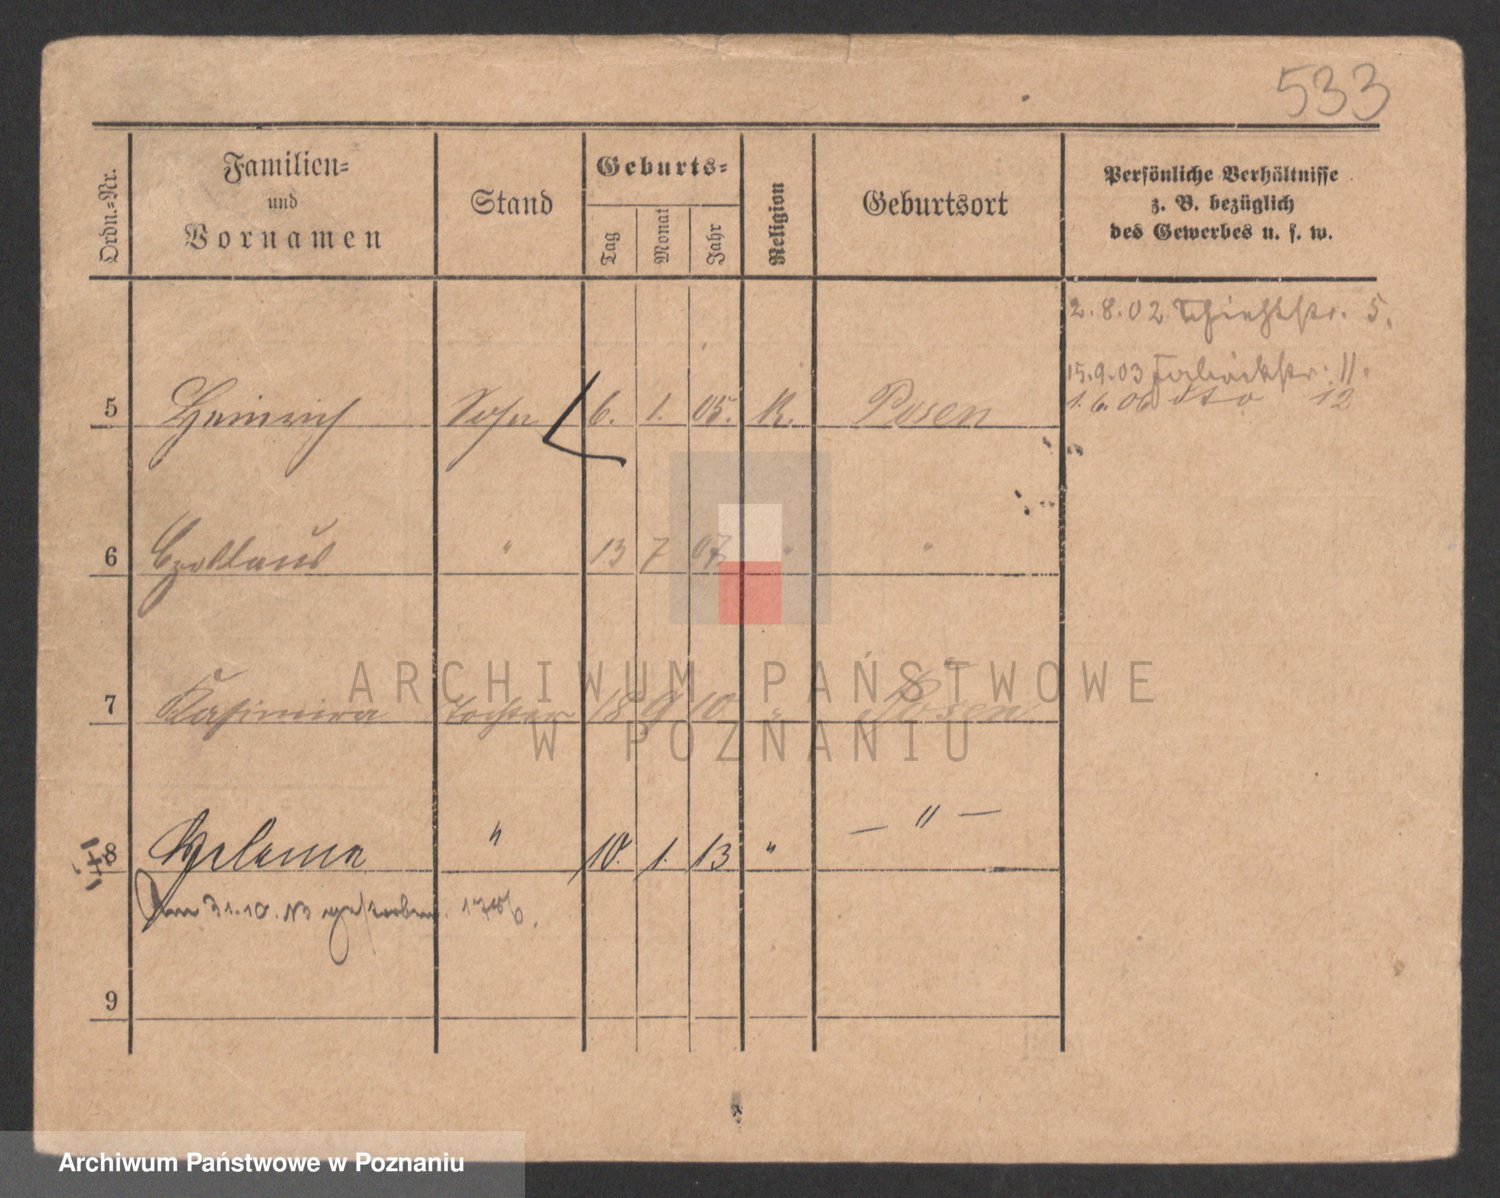 533
Ordn.-Nr. Familien- und Vornamen Stand Geburts- Tag Monat Jahr Religion Geburtsort Persönliche Verhältnisse z. B. bezüglich des Gewerbes u. s. w.
2.8.02 5.
15.9.03 11.
1.6.06 dto 12
5 Heinrich Sohn 6. 1. 05. K. Posen
6 " 13 7 07 " "
7 Kasimira Tochter 18 9 10 " Posen
ARCHIWUM PAŃSTWOWE
W POZNANIU
8 Helena " 10. 1. 13 " — " —
31.10.13 gestorben.
9
Archiwum Państwowe w Poznaniu